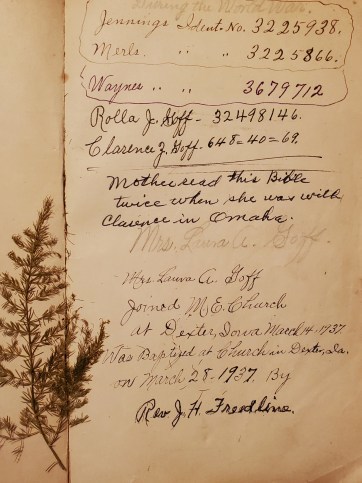 During the World War.
Jennings Ident. No. 3225938.
Merls. " " 3225866.
Waynes " " 3679712
Rolla J. Goff - 32498146.
Clarence Z. Goff. 648=40=69.
Mother read this Bible
twice when she was with
Clarence in Omaha.
Mrs. Luva A. Goff.
Mrs Luva A. Goff
Joined M.E. Church
at Dexter, Iowa March 14-1937
Was Baptized at Church in Dexter, Ia.
on March 28-1937. By
Rev J. H. Freedline.